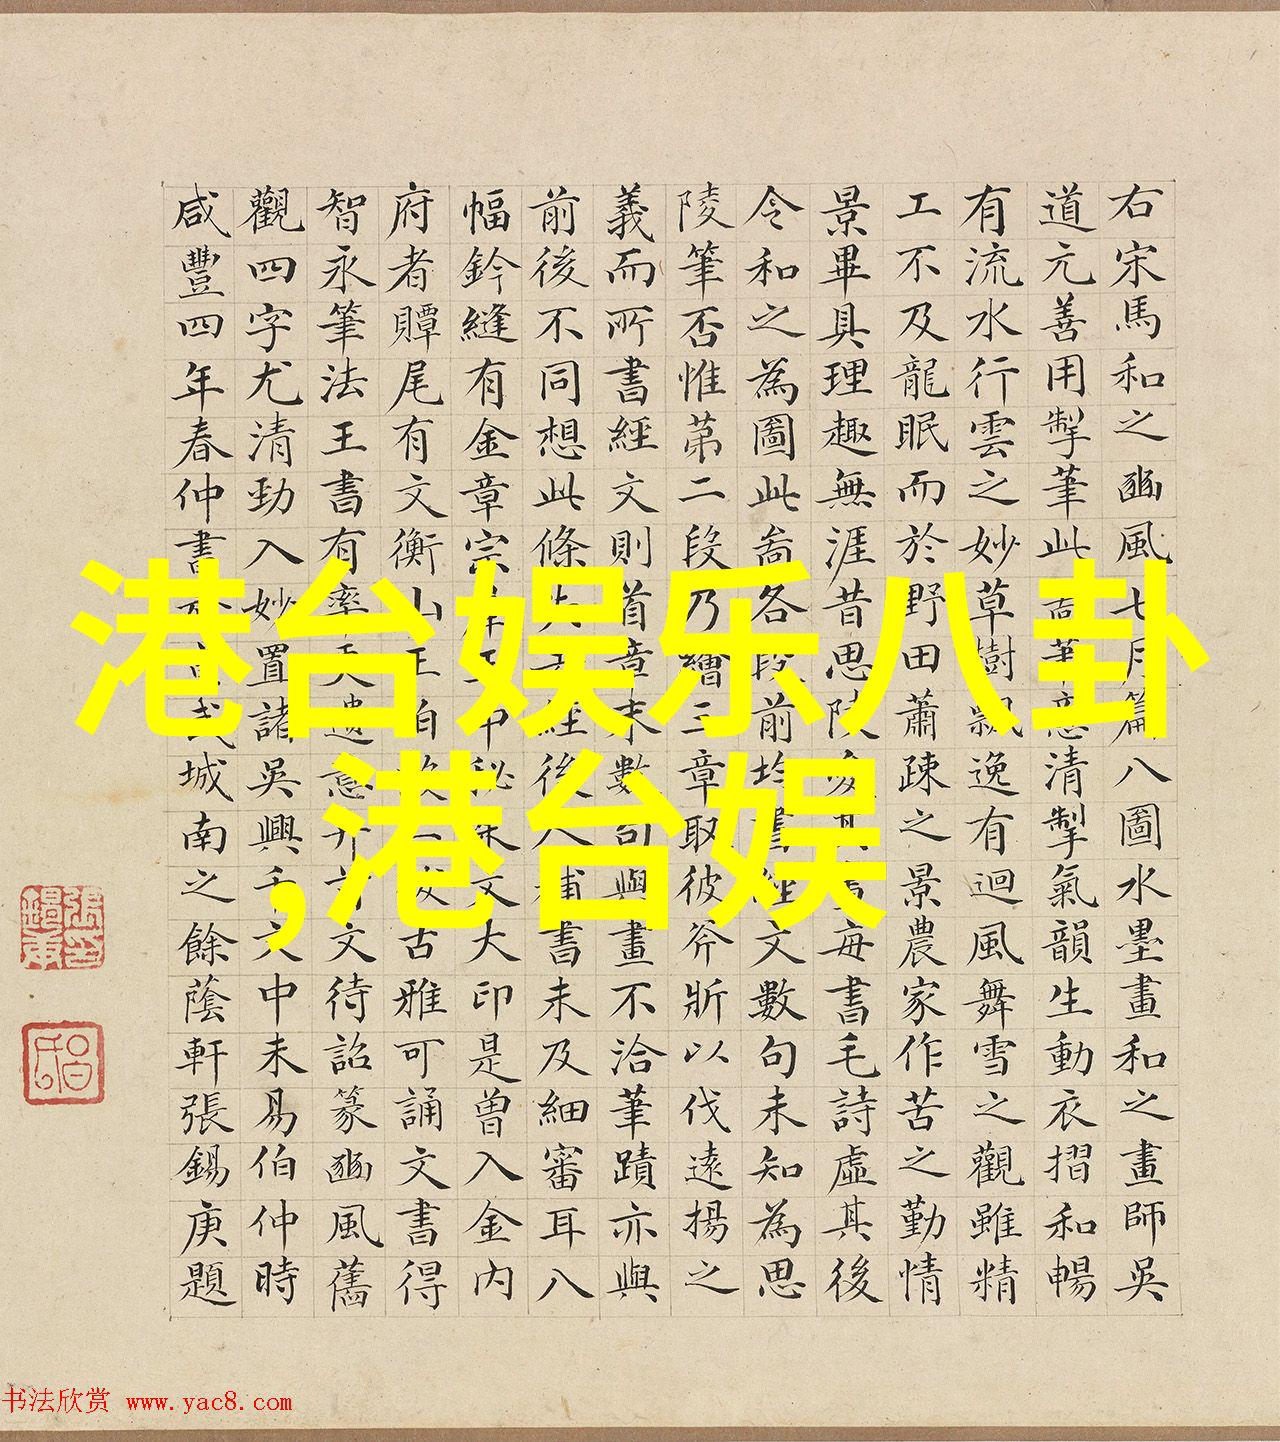 右宋馬和之豳風七月篇八圖水墨畫和之畫師吳
道元善用掣筆此清掣氣韻生動衣摺和暢
有流水行雲之妙草樹飄逸有迴風舞雪之觀雖精
工不及龍眠而於野田蕭疎之景農家作苦之勤情
景畢具理趣無涯昔思陵每書毛詩虛其後
令和之為圖此圖各段前均書經文數句未知為思
陵筆否惟第二段乃繪三章取彼斧斨以伐遠揚之
義而所書經文則首章末數句與畫不洽筆蹟亦與
前後不同想此條經後人補書未及細審耳八
幅鈐縫有金章宗秘文大印是曾入金內
府者贉尾有文衡山王伯古雅可誦文書得
智永筆法王書有率天遺意文待詔篆豳風舊
觀四字尤清勁入妙置諸吳興千文中未易伯仲時
咸豐四年春仲書城南之餘蔭軒張錫庚題
港台娱乐八卦
,港台娱
书法欣赏 www.yac8.com